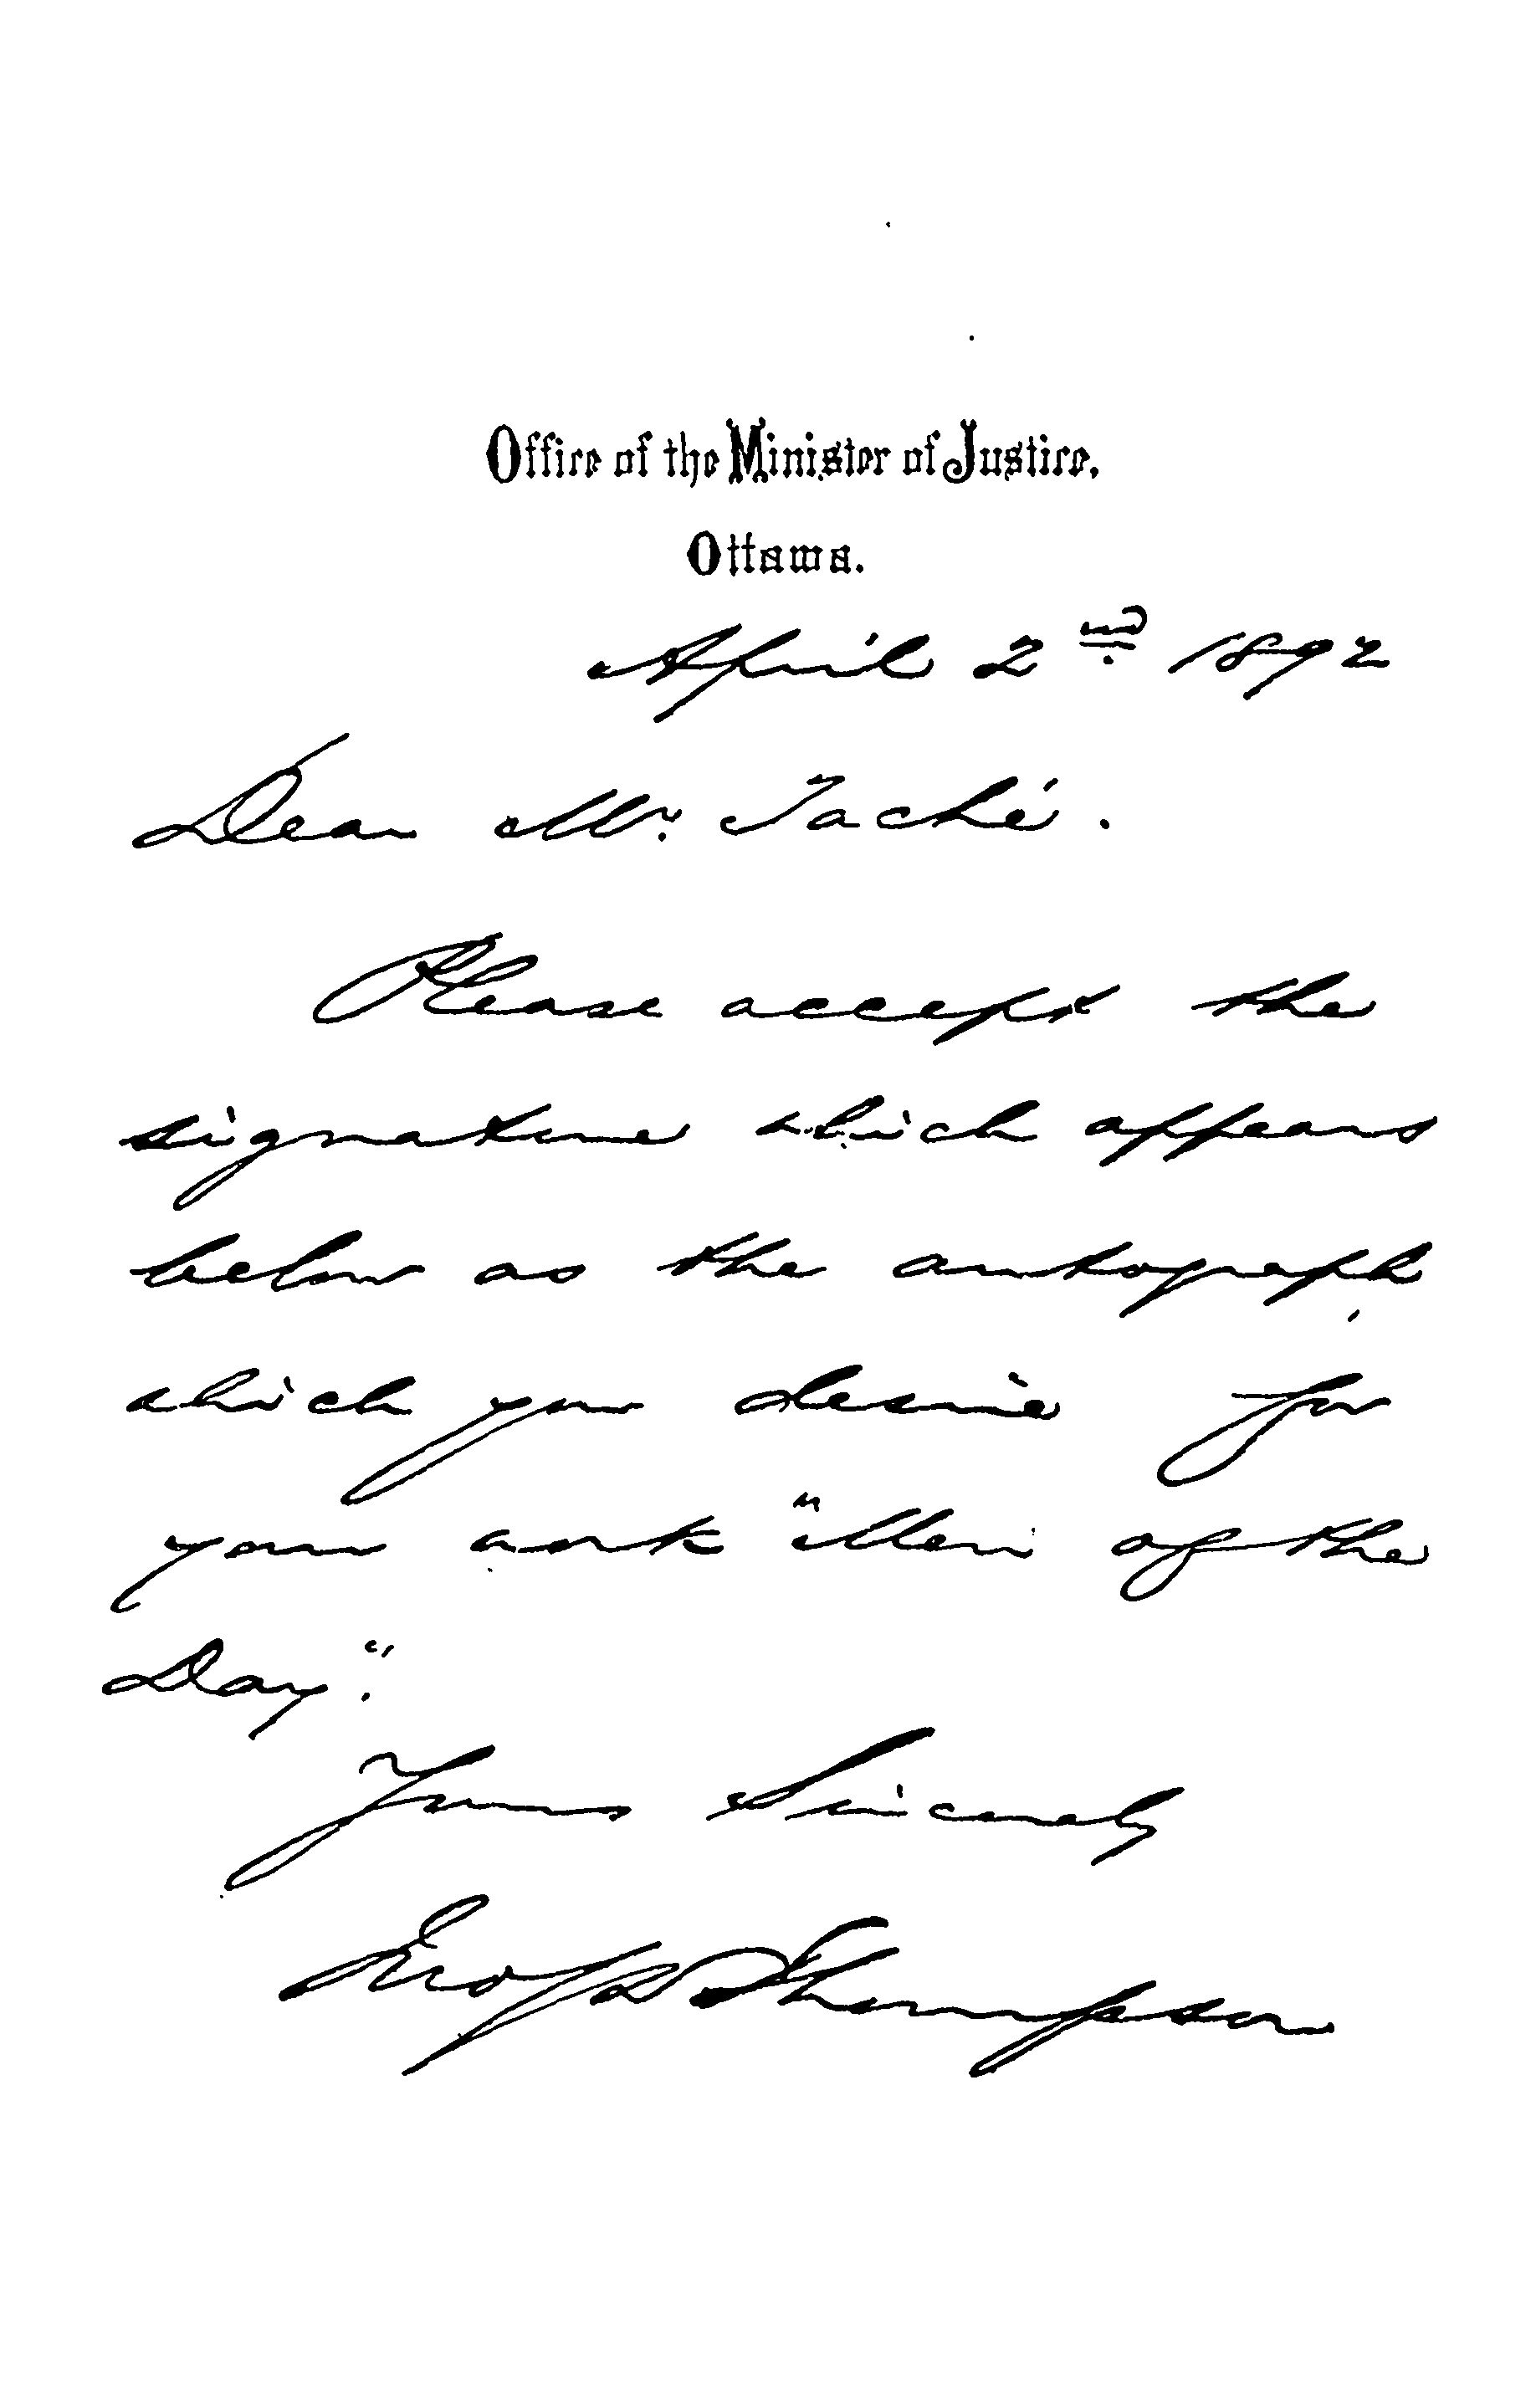 Office of the Minister of Justice,
Ottawa.
April 2nd 1892
Dear Mr. Taché.
Please accept the
signature which appears
below as the autograph
which you desire for
your work "Men of the
Day".
Yours Sincerely
Jno S D Thompson